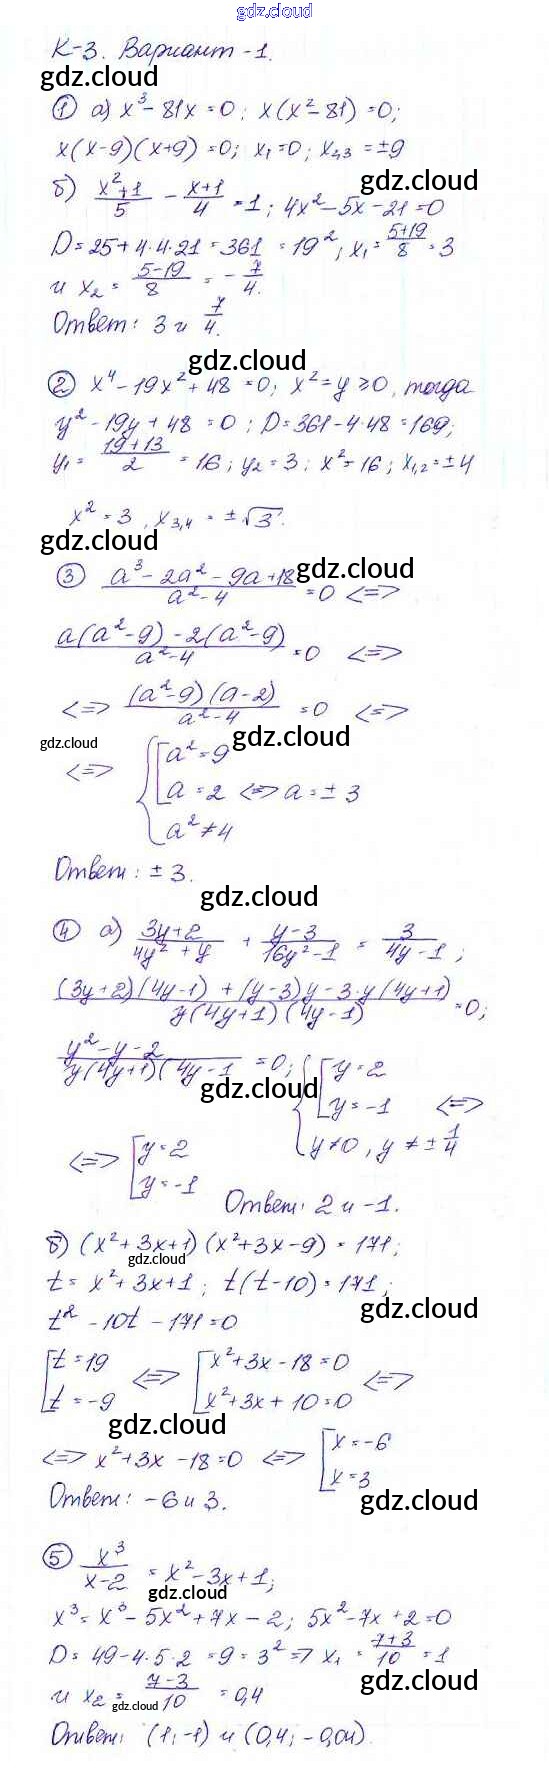 gdz.cloud
К-3. Вариант -1.
gdz.cloud
① а) x³ - 81x = 0; x(x² - 81) = 0;
x(x-9)(x+9) = 0; x₁ = 0; x₂,₃ = ±9
gdz.cloud
б) (x²+1)/5 - (x+1)/4 = 1; 4x² - 5x - 21 = 0
D = 25 + 4·4·21 = 361 = 19²; x₁ = (5+19)/8 = 3
и x₂ = (5-19)/8 = -7/4.
Ответ: 3 и 7/4.
gdz.cloud
② x⁴ - 19x² + 48 = 0; x² = y ≥ 0, тогда
y² - 19y + 48 = 0; D = 361 - 4·48 = 169;
y₁ = (19+13)/2 = 16; y₂ = 3; x² = 16; x₁,₂ = ±4
x² = 3, x₃,₄ = ±√3.
gdz.cloud
gdz.cloud
③ (a³ - 2a² - 9a + 18)/(a² - 4) = 0 <=>
(a(a² - 9) - 2(a² - 9))/(a² - 4) = 0 <=>
<=> ((a² - 9)(a - 2))/(a² - 4) = 0 <=>
gdz.cloud
gdz.cloud
<=> { [ a² = 9
a = 2 <=> a = ± 3
a² ≠ 4
Ответ: ± 3.
gdz.cloud
④ а) (3y+2)/(4y² + y) + (y-3)/(16y² - 1) = 3/(4y - 1);
((3y+2)(4y-1) + (y-3)y - 3·y(4y+1))/(y(4y+1)(4y-1)) = 0;
(y² - y - 2)/(y(4y+1)(4y-1) = 0; { [ y = 2
gdz.cloud
y = -1 <=>
y ≠ 0, y ≠ ± 1/4
<=> [ y = 2
y = -1
Ответ: 2 и -1.
б) (x² + 3x + 1)(x² + 3x - 9) = 171;
gdz.cloud
t = x² + 3x + 1; t(t - 10) = 171;
gdz.cloud
t² - 10t - 171 = 0
[ t = 19 <=> [ x² + 3x - 18 = 0 <=>
t = -9 x² + 3x + 10 = 0
gdz.cloud
<=> x² + 3x - 18 = 0 <=> [ x = -6
x = 3
Ответ: -6 и 3.
gdz.cloud
⑤ x³/(x-2) = x² - 3x + 1;
gdz.cloud
x³ = x³ - 5x² + 7x - 2; 5x² - 7x + 2 = 0
D = 49 - 4·5·2 = 9 = 3² => x₁ = (7+3)/10 = 1
gdz.cloud
и x₂ = (7-3)/10 = 0,4
gdz.cloud
Ответ: (1; -1) и (0,4; -0,04).